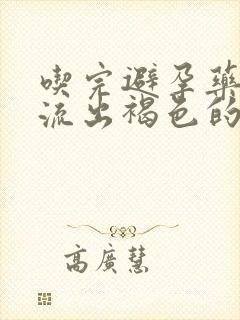 喫完避孕藥
流出褐色的
高廣慧